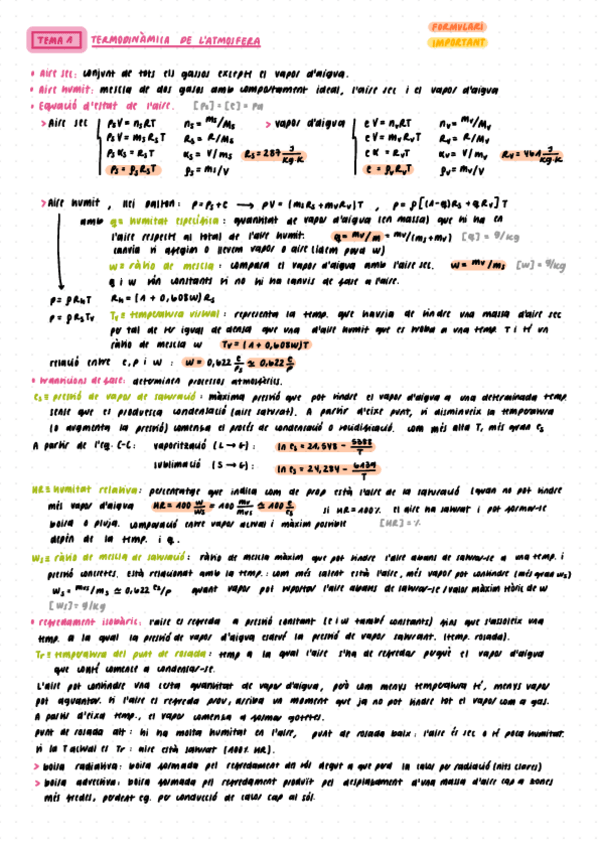 FORMULARI
TEMA 1 TERMODINÀMICA DE L'ATMOSFERA
IMPORTANT
• Aire sec: conjunt de tots els gassos excepte el vapor d'aigua.
• Aire humit: mescla de dos gasos amb comportament ideal, l'aire sec i el vapor d'aigua
• Equació d'estat de l'aire. [Ps] = [e] = Pa
> Aire sec PsV = nsRT ns = ms/Ms > vapor d'aigua eV = nvRT nv = mv/Mv
PsV = msRsT Rs = R/Ms eV = mvRvT Rv = R/Mv
Psαs = RsT αs = V/ms Rs = 287 J/kg·K eα = RvT αv = V/mv Rv = 461 J/kg·K
Ps = ρsRsT ρs = ms/V e = ρvRvT ρv = mv/V
> Aire humit, llei Dalton: P = Ps + e → PV = (msRs + mvRv)T, P = ρ[(1-q)Rs + qRv]T
amb q ≡ humitat específica: quantitat de vapor d'aigua (en massa) que hi ha en
l'aire respecte al total de l'aire humit. q = mv/m = mv/(ms+mv) [q] = g/kg
canvia si afegim o llevem vapor o aire (idem para w)
w ≡ ràtio de mescla: compara el vapor d'aigua amb l'aire sec. w = mv/ms [w] = g/kg
q i w són constants si no hi ha canvis de fase a l'aire.
P = ρRhT Rh = (1 + 0,608w)Rs
P = ρRsTv Tv ≡ temperatura virtual: representa la temp. que hauria de tindre una massa d'aire sec
per tal de ser igual de densa que una d'aire humit que es troba a una temp T i té un
ràtio de mescla w Tv = (1 + 0,608w)T
relació entre e, P i w: w = 0,622 e/Ps ≃ 0,622 e/P
• transicions de fase: determinen processos atmosfèrics.
es ≡ pressió de vapor de saturació: màxima pressió que pot tindre el vapor d'aigua a una determinada temp.
sense que es produesca condensació (aire saturat). A partir d'eixe punt, si disminueix la temperatura
(o augmenta la pressió) comensa el procés de condensació o solidificació. com més alta T, més gran es
A partir de l'eq. C-C: vaporització (L → G): ln es = 21,548 - 5388/T
sublimació (S → G): ln es = 24,284 - 6139/T
HR ≡ humitat relativa: percentatge que indica com de prop està l'aire de la saturació (quan no pot tindre
més vapor d'aigua HR = 100 w/ws = 100 mv/mvs ≃ 100 e/es si HR = 100% el aire ha saturat i pot formar-se
boira o pluja. comparació entre vapor actual i màxim possible [HR] = %
depén de la temp. i q.
ws ≡ ràtio de mescla de saturació: ràtio de mescla màxim que pot tindre l'aire abans de saturar-se a una temp. i
pressió concretes. està relacionat amb la temp.: com més calent està l'aire, més vapor pot contindre (més gran ws)
ws = mvs/ms ≃ 0,622 es/P quant vapor pot suportar l'aire abans de saturar-se / valor màxim tòric de w
[ws] = g/kg
• refredament isobàric: l'aire es refreda a pressió constant (e i w també constants) fins que s'assoleix una
temp. a la qual la pressió de vapor d'aigua esdevé la pressió de vapor saturant. (temp. rosada).
Tr ≡ temperatura del punt de rosada: temp a la qual l'aire s'ha de refredar perquè el vapor d'aigua
que conté comence a condensar-se.
L'aire pot contindre una certa quantitat de vapor d'aigua, però com menys temperatura té, menys vapor
pot aguantar. si l'aire es refreda prou, arriba un moment que ja no pot tindre tot el vapor com a gas.
A partir d'eixa temp., el vapor comensa a formar gotetes.
punt de rosada alt: hi ha molta humitat en l'aire, punt de rosada baix: l'aire és sec o té poca humitat.
si la T actual es Tr: aire està saturat (100% HR).
> boira radiativa: boira formada pel refredament del sòl degut a que perd la calor per radiació (nits clares)
> boira advectiva: boira formada pel refredament produït pel desplaçament d'una massa d'aire cap a zones
més fredes, perdent eg. per conducció de calor cap al sòl.